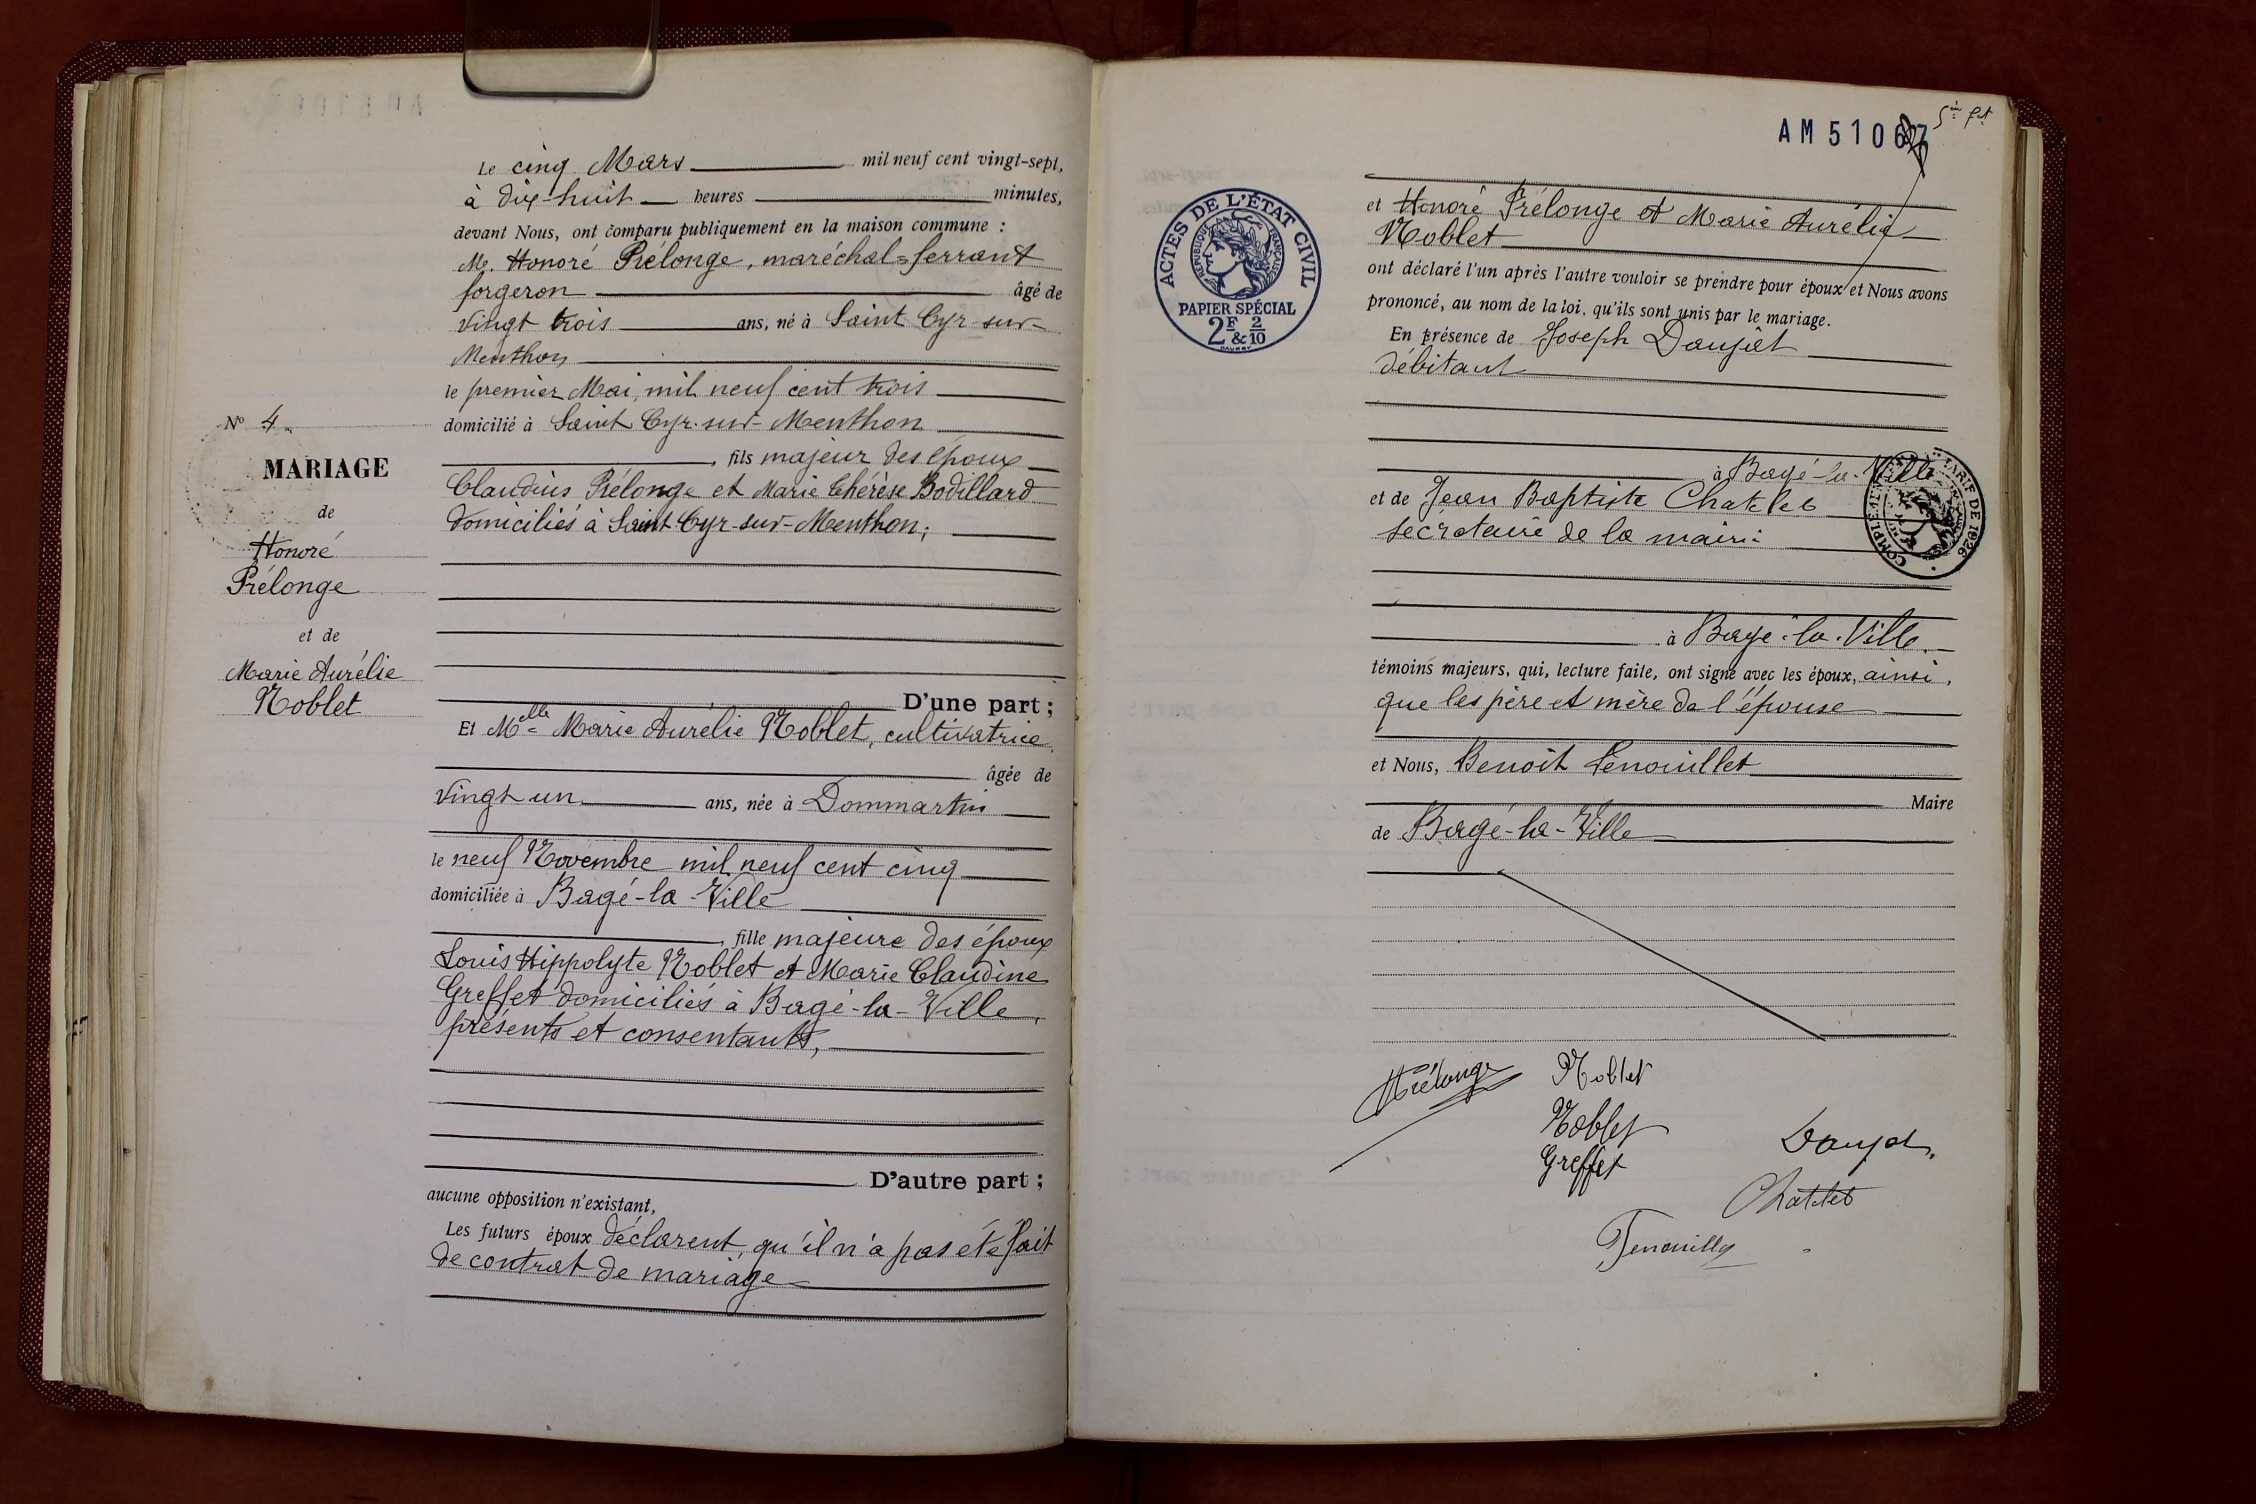 Le cinq Mars mil neuf cent vingt-sept,
à dix-huit heures minutes,
devant Nous, ont comparu publiquement en la maison commune :
M. Honoré Prélonge, maréchal=ferrant
forgeron âgé de
vingt trois ans, né à Saint Cyr-sur-
Menthon
le premier Mai, mil neuf cent trois
domicilié à Saint Cyr-sur-Menthon
, fils majeur des époux
Claudius Prélonge et Marie Thérèse Bodillard
domiciliés à Saint Cyr-sur-Menthon;
N° 4
MARIAGE
de
Honoré
Prélonge
et de
Marie Aurélie
Noblet
D'une part ;
Et Melle Marie Aurélie Noblet, cultivatrice,
âgée de
vingt un ans, née à Dommartin
le neuf Novembre mil neuf cent cinq
domiciliée à Bagé-la-Ville
, fille majeure des époux
Louis Hippolyte Noblet et Marie Claudine
Greffet domiciliés à Bagé-la-Ville,
présents et consentants,
D'autre part ;
aucune opposition n'existant,
Les futurs époux déclarent, qu'il n'a pas été fait
de contrat de mariage
AM 51067
ACTES DE L'ÉTAT CIVIL
RÉPUBLIQUE FRANÇAISE
PAPIER SPÉCIAL
2F & 2/10
et Honoré Prélonge et Marie Aurélie
Noblet
ont déclaré l'un après l'autre vouloir se prendre pour époux et Nous avons
prononcé, au nom de la loi, qu'ils sont unis par le mariage.
En présence de Joseph Daujat
débitant
à Bagé-la-Ville
et de Jean Baptiste Chatelet
secrétaire de la mairie
COMPLÉMENT TARIF DE 1926
à Bagé-la-Ville
témoins majeurs, qui, lecture faite, ont signé avec les époux, ainsi,
que les père et mère de l'épouse
et Nous, Benoit Penouillet
Maire
de Bagé-la-Ville
Prélonge
Noblet
Noblet
Greffet
Daujat
Chatelet